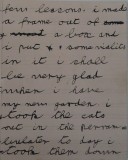 few lessons. i made
a frame out of some
a box and
i put some violets
in it i shall
be very glad
when i have
my new garden. i
took the cats
out in the peram=
bulator to day i
took them down